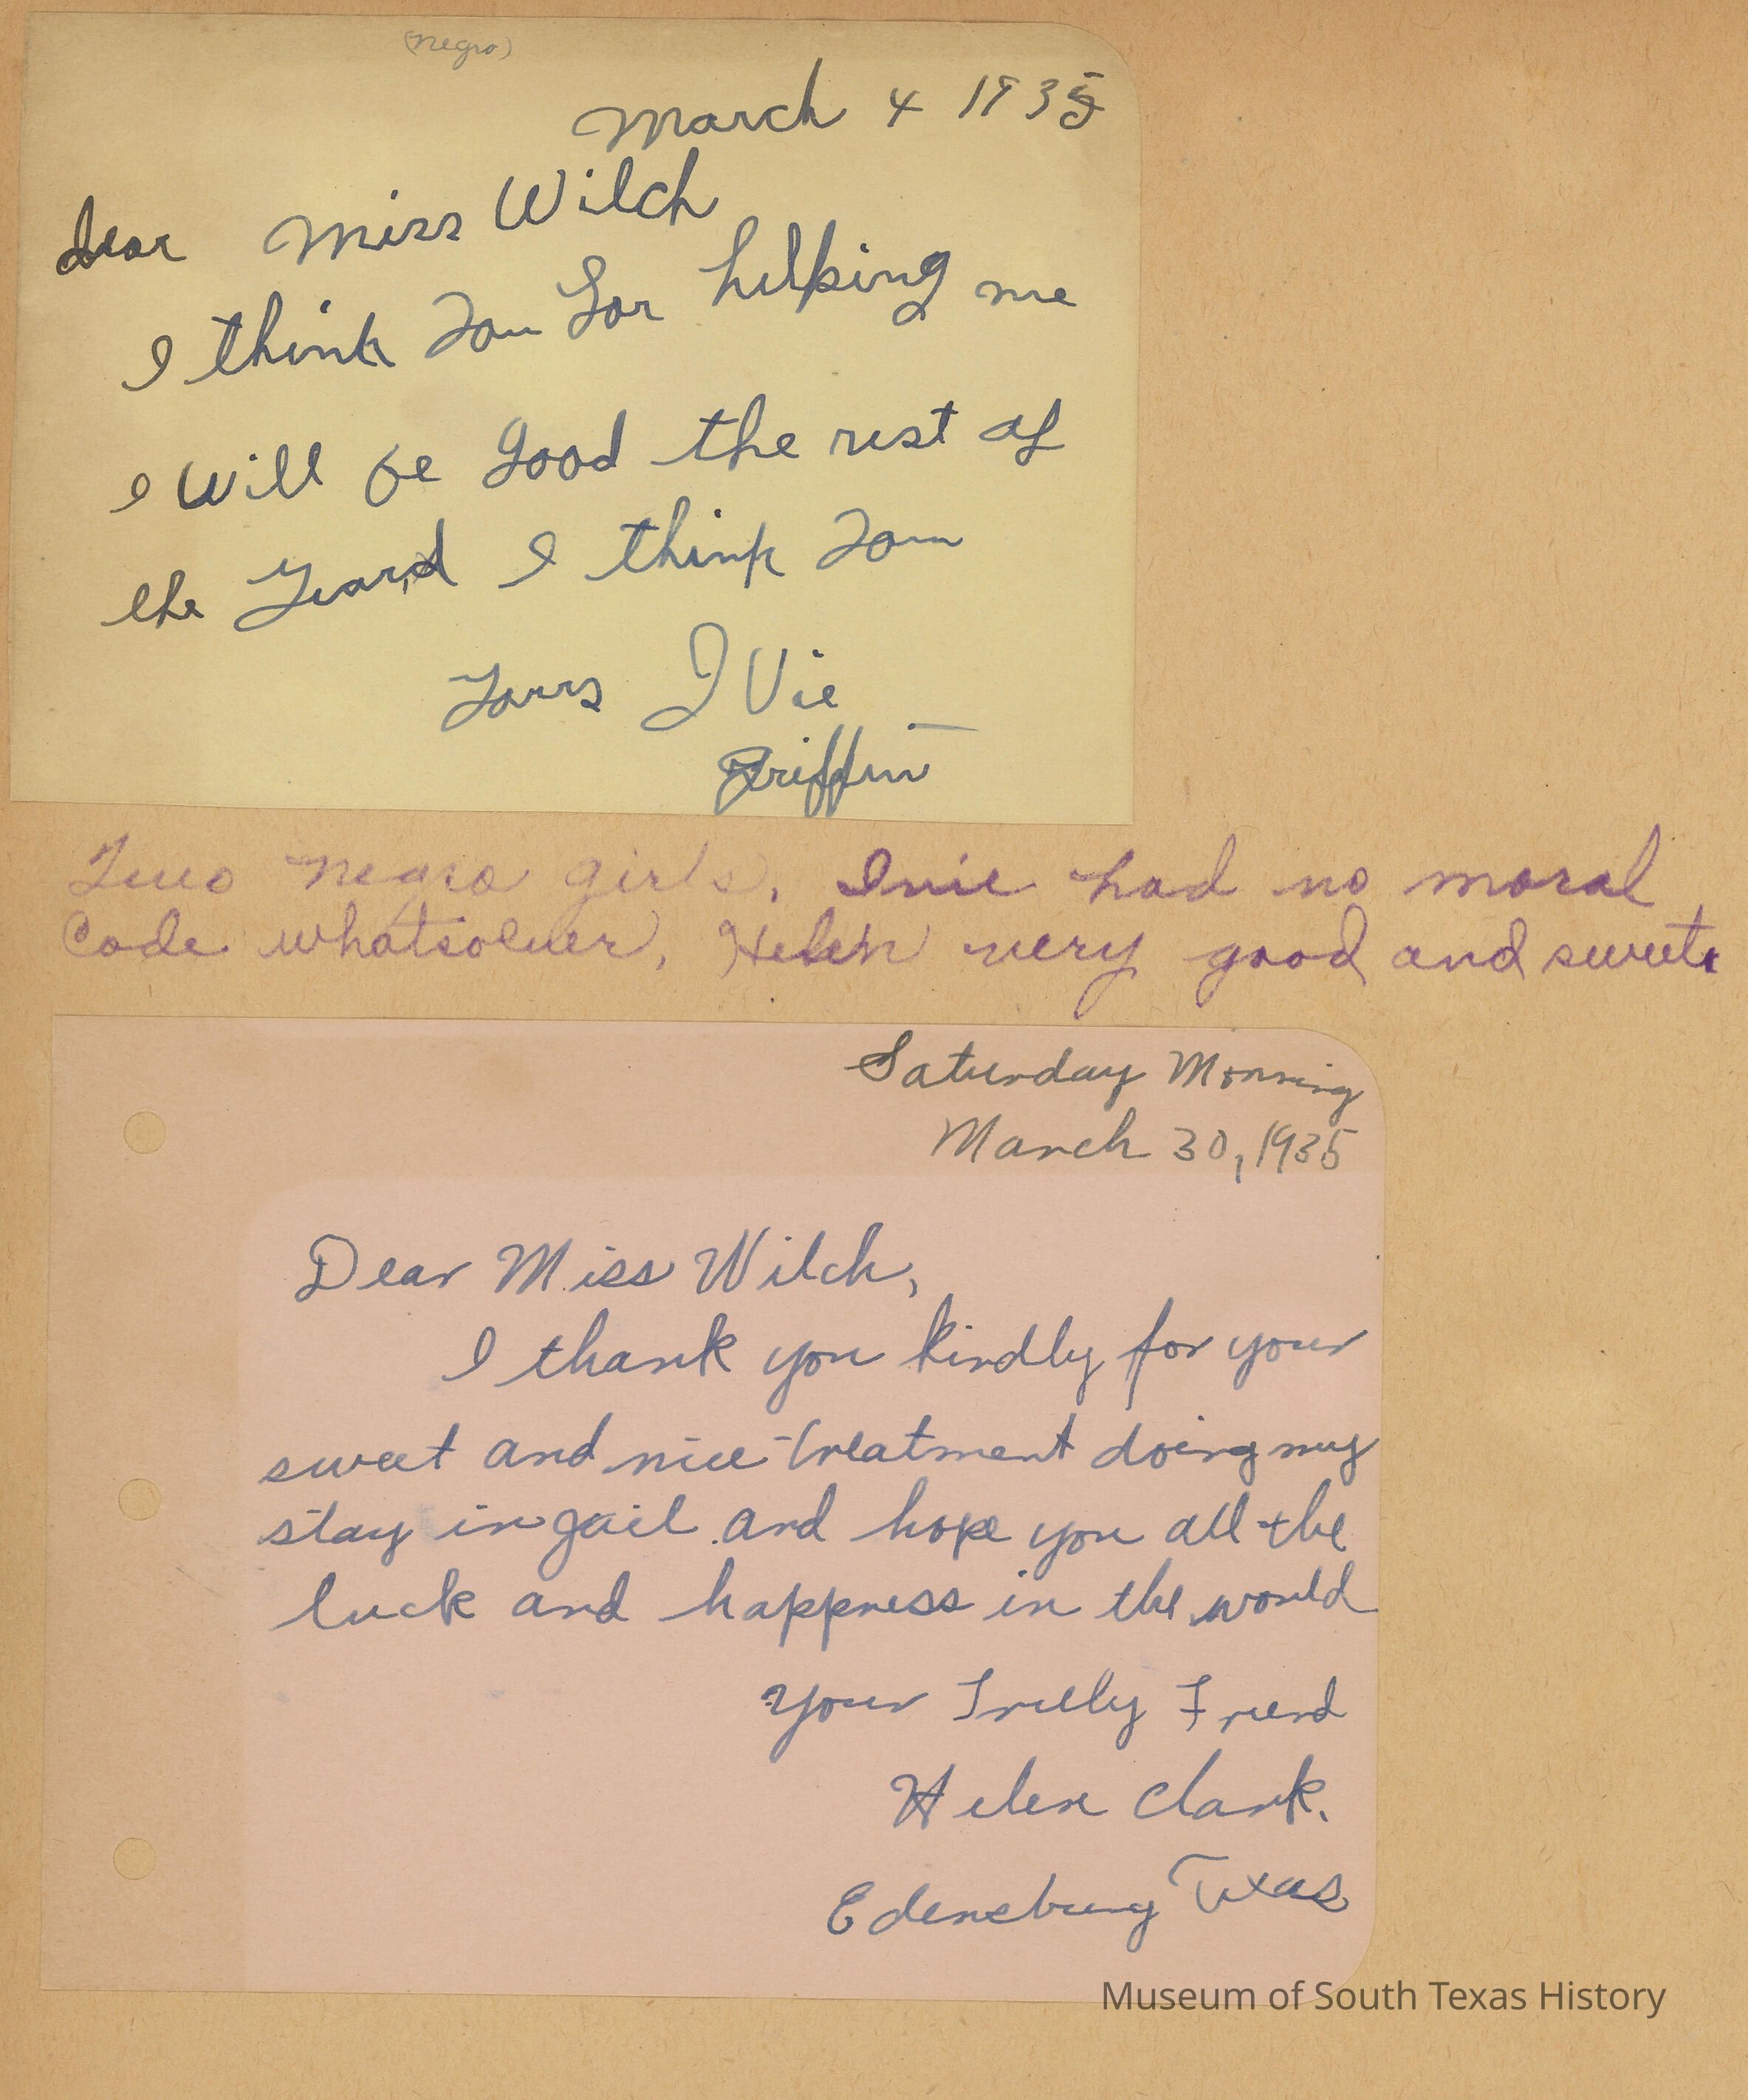 (negro)
March 4 1935
dear Miss Wilch
I think you for helping me
I will be good the rest of
the Yeard I think you
yours I Vie
Griffin
Two negro girls. Inie had no moral
code whatsoever, Helen very good and sweet.
Saturday Morning
March 30, 1935
Dear Miss Wilch,
I thank you kindly for your
sweet and nice treatment doing my
stay in jail and hope you all the
luck and happness in the would
Your Trully Friend
Helen Clark.
Edensburg Texas
Museum of South Texas History